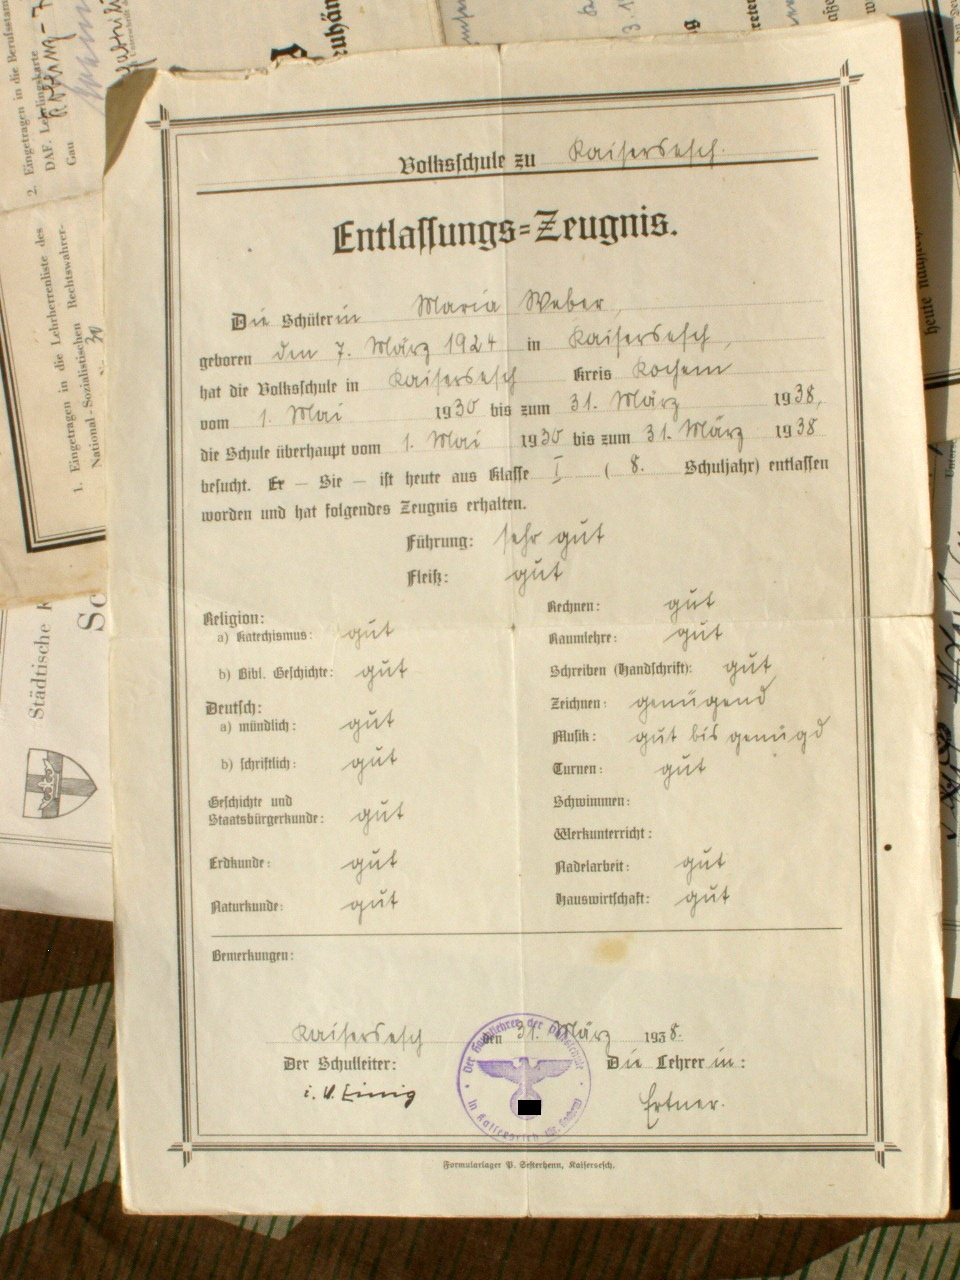 Volksschule zu Kaisersesch.
Entlassungs=Zeugnis.
Die Schülerin Maria Weber,
geboren den 7. März 1924 in Kaisersesch,
hat die Volksschule in Kaisersesch Kreis Kochem
vom 1. Mai 1930 bis zum 31. März 1938,
die Schule überhaupt vom 1. Mai 1930 bis zum 31. März 1938
besucht. Er — Sie — ist heute aus Klasse I ( 8. Schuljahr) entlassen
worden und hat folgendes Zeugnis erhalten.
Führung: sehr gut
Fleiß: gut
Religion:
a) Katechismus: gut
b) Bibl. Geschichte: gut
Deutsch:
a) mündlich: gut
b) schriftlich: gut
Geschichte und
Staatsbürgerkunde: gut
Erdkunde: gut
Naturkunde: gut
Rechnen: gut
Raumlehre: gut
Schreiben (Handschrift): gut
Zeichnen: genügend
Musik: gut bis genügd
Turnen: gut
Schwimmen:
Werkunterricht:
Nadelarbeit: gut
Hauswirtschaft: gut
Bemerkungen:
Kaisersesch den 31. März 1938.
Der Schulleiter: Die Lehrerin:
i. V. Einig Ertner.
Formularlager P. Sesterhenn, Kaisersesch.
2. Eingetragen in die Berufsstam
DAF. Lehrlingskarte
Gau
1. Eingetragen in die Lehrherrenliste des
National-Sozialistischen Rechtswahrer-
30
Städtische
heute nach